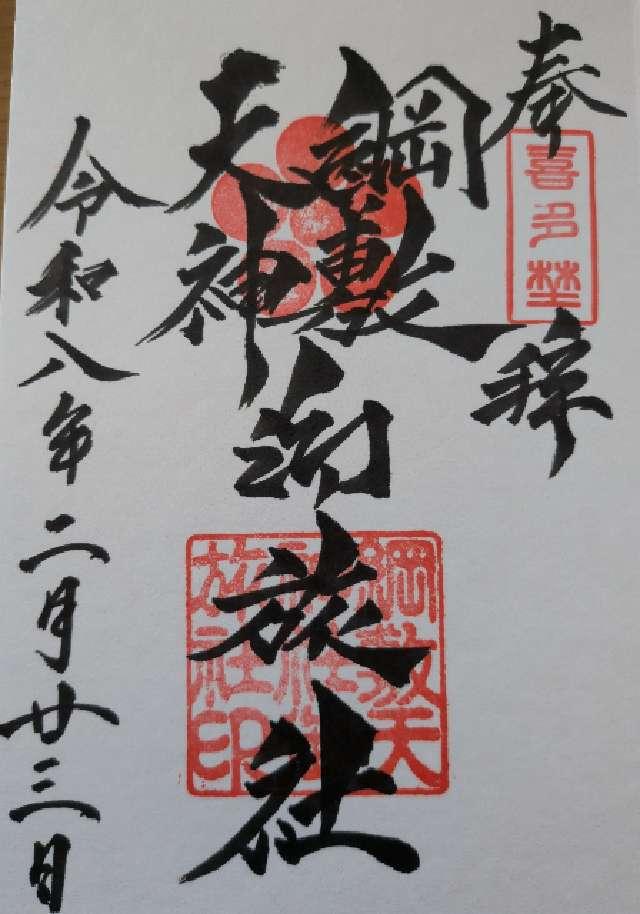 奉拝
喜多埜
綱敷
天神
御旅社
綱敷天
神社御
旅社印
令和八年二月廿三日